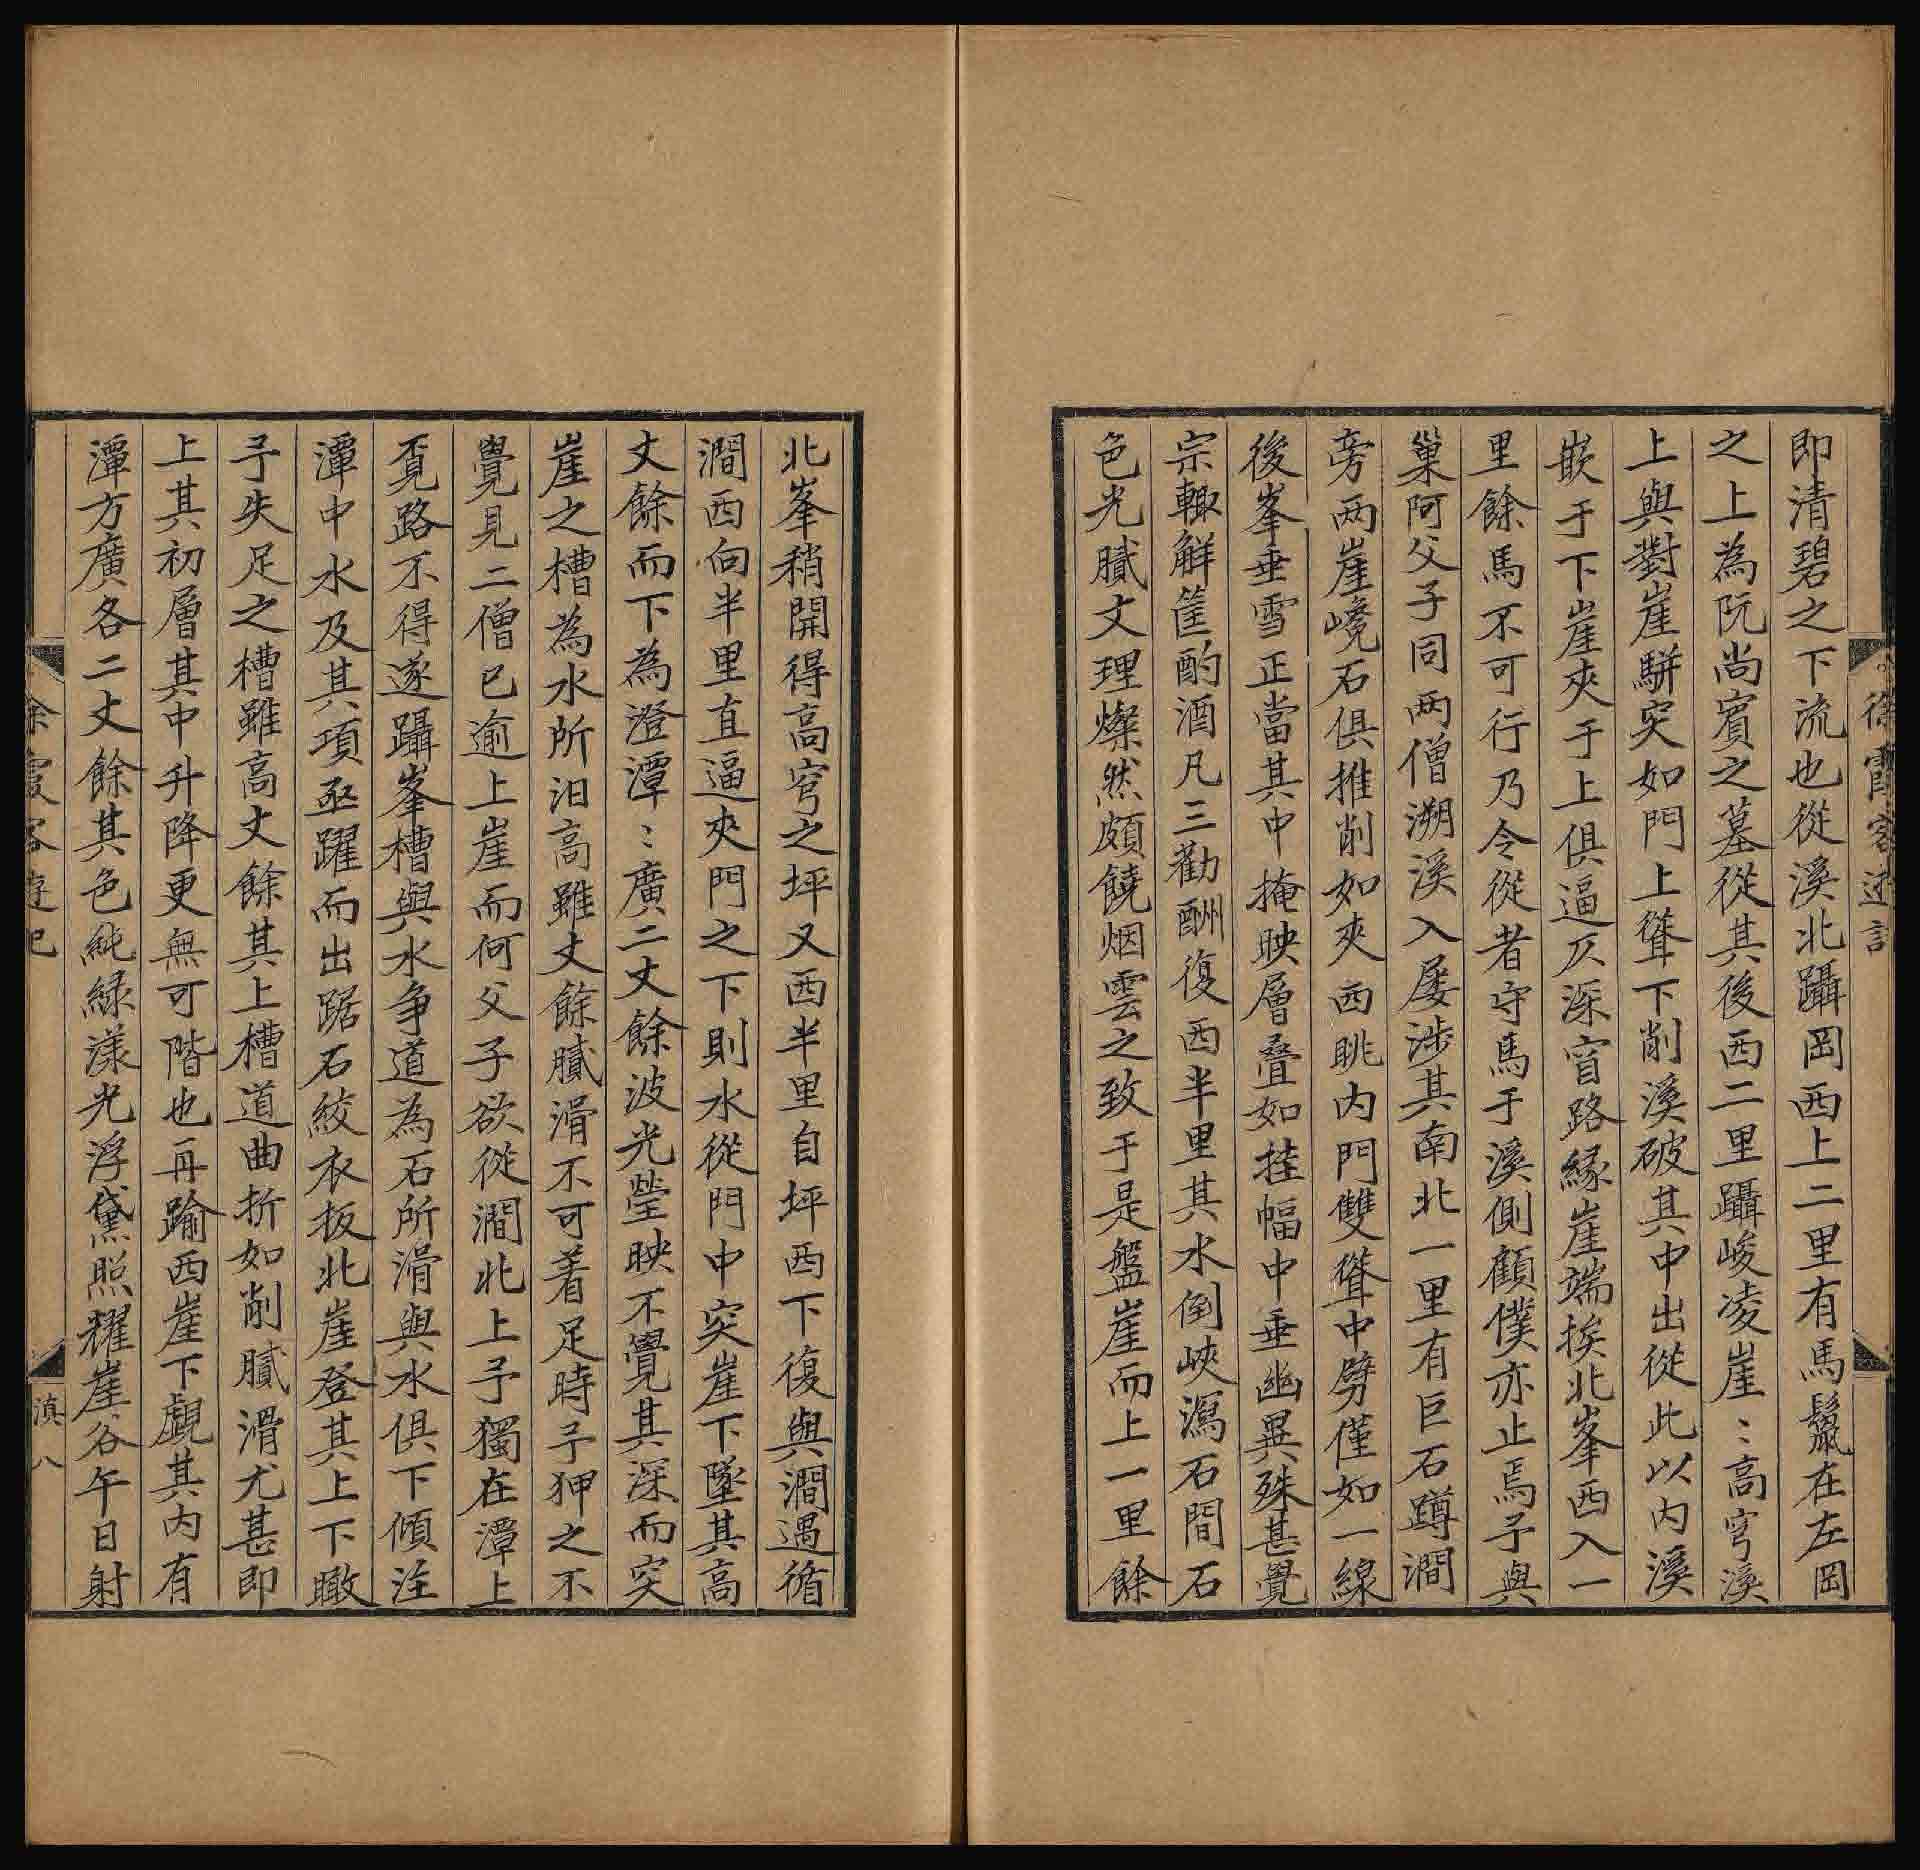 徐霞客遊記
即清碧之下流也從溪北躡岡西上二里有馬鬣在左岡
之上為阮尚賓之墓從其後西二里躡峻凌崖〻高穹溪
上與對崖駢突如門上聳下削溪破其中出從此以内溪
嵌于下崖夾于上俱逼仄深窅路縁崖端挨北峯西入一
里餘馬不可行乃令從者守馬于溪側顧僕亦止焉予與
巢阿父子同两僧溯溪入屡涉其南北一里有巨石蹲澗
旁两崖巉石俱推削如夾西眺内門雙聳中劈僅如一線
後峯垂雪正當其中掩映層叠如挂幅中垂幽異殊甚覺
宗輙解筐酌酒凡三勸酬復西半里其水倒峽瀉石間石
色光膩文理燦然頗饒烟雲之致于是盤崖而上一里餘
北峯稍開得高穹之坪又西半里自坪西下復與澗遇循
澗西向半里直逼夾門之下則水從門中突崖下墜其高
丈餘而下為澄潭〻廣二丈餘波光瑩映不覺其深而突
崖之槽為水所汩高雖丈餘膩滑不可着足時予狎之不
覺見二僧已逾上崖而何父子欲從澗北上予獨在潭上
覓路不得遂躡峯槽與水争道為石所滑與水俱下傾注
潭中水及其項亟躍而出踞石絞衣扳北崖登其上下瞰
予失足之槽雖高丈餘其上槽道曲折如削膩滑尤甚即
上其初層其中升降更無可階也再踰西崖下覷其内有
潭方廣各二丈餘其色純緑漾光浮黛照耀崖谷午日射
徐霞客遊記
滇八